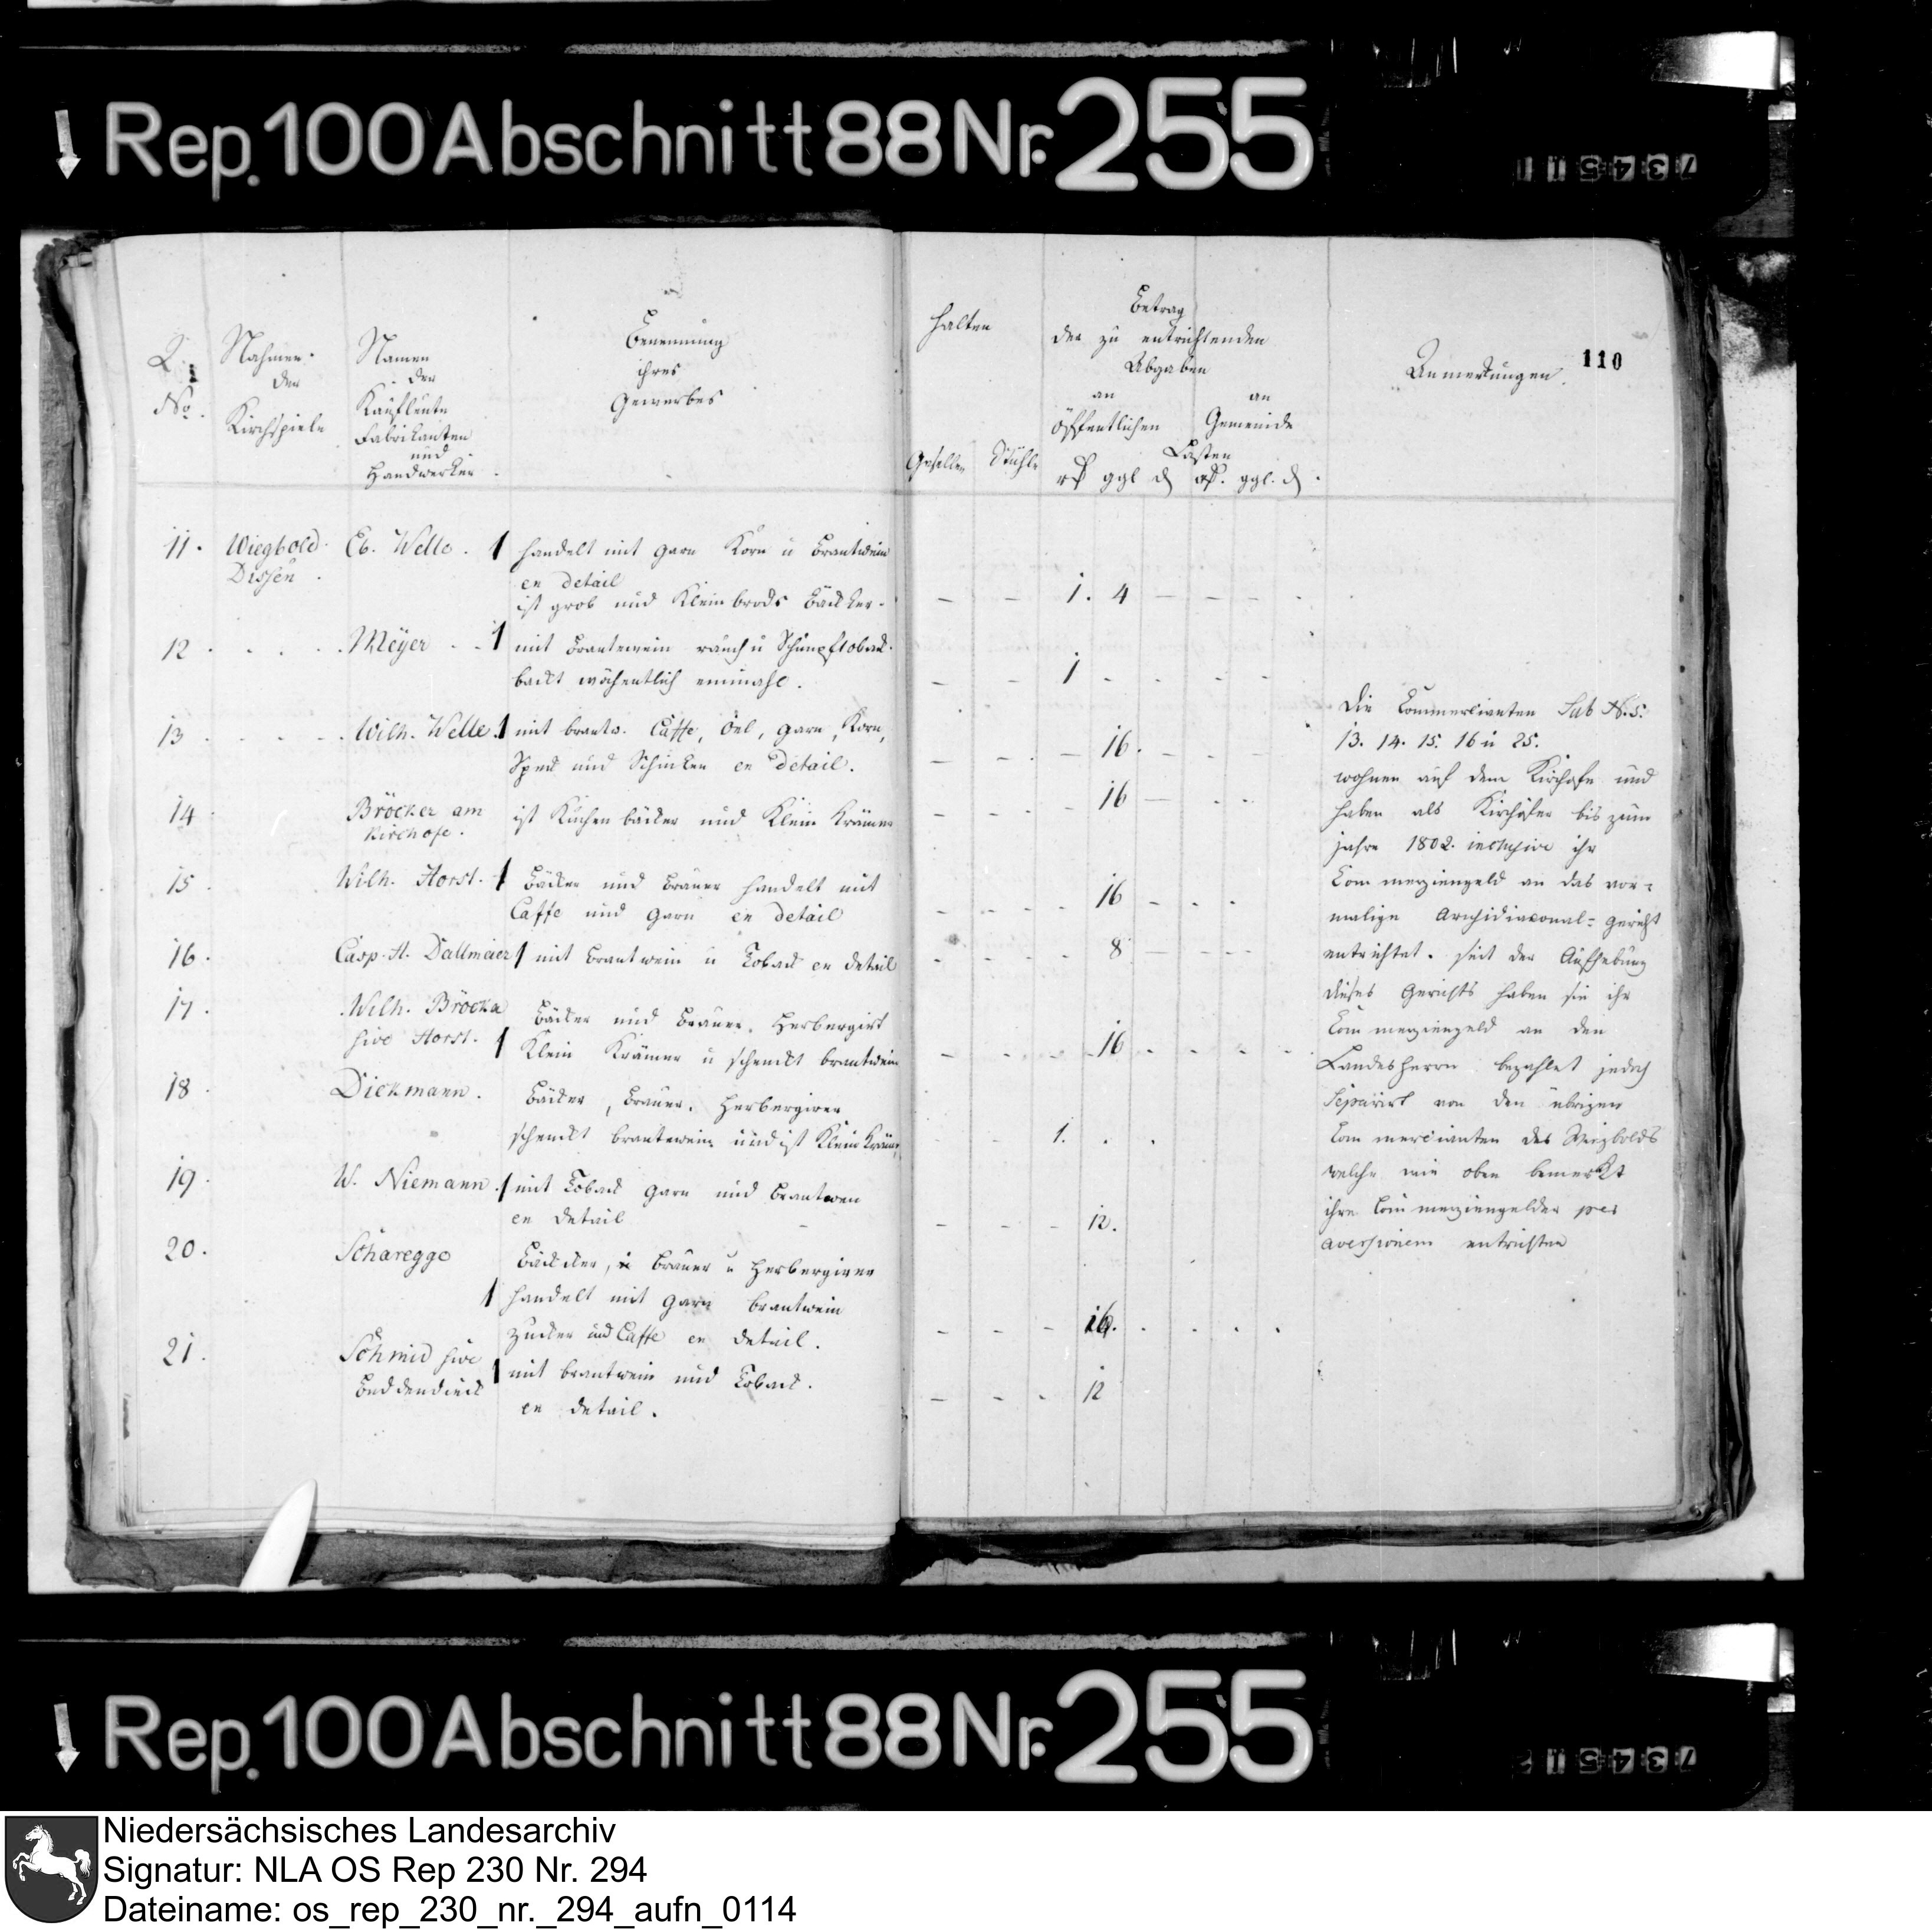 Rep. 100 Abschnitt 88 Nr. 255
73451
110
Nahmen
der
Kirchspiele
No.
Namen
der
Kaufleute
Fabrikanten
und
Handwerker
Benennung
ihres
Gewerbes
halten
Gesellen Stühle
Betrag
der zu entrichtenden
Abgaben
an an
öffentlichen Gemeinde
Lasten
ggl d ggl. d
Anmerkungen.
11. Wiegbold Eb. Welle. 1 handelt mit garn Korn u Brantwein
Dissen en detail
ist grob und Kleinbrods Bäcker. – – 1. 4 – – –
12 Meÿer 1 mit Brantewein rauch u Schnupftoback
backt wöchentlich einmahl. – – 1
13 Wilh. Welle 1 mit brantw. Caffe, Oel, garn, Korn,
Speck und Schinken en detail. – – 16.
14 Bröcker am ist Kuchenbäcker und Klein Krämer – – 16
Kirchofe.
15 Wilh. Horst. 1 Bäcker und Brauer handelt mit
Caffe und garn en detail – – 16
16. Casp. H. Dallmeier 1 mit Brantwein u Toback en detail – – 8
17. Wilh. Bröcker Bäcker und Brauer. Herbergirt
sive Horst. 1 Klein Krämer u schenckt brantwein – – 16
18 Dickmann. Bäcker, Brauer. Herbergirer
schenckt brantewein und ist Klein Krämer 1.
19 W. Niemann 1 mit Toback garn und Brantwen
en detail – – 12.
20. Scharegge Bäcker, Brauer u Herbergirer
1 handelt mit garn brantwein
Zucker und Caffe en detail. – – 16.
21. Schmid sive 1 mit brantwein und Toback.
Beddendieck en detail. – – 12
Die Commercianten Sub N. 5.
13. 14. 15. 16 u 25.
wohnen auf dem Kirchofe und
haben als Kirchhöfer bis zum
jahre 1802. inclusive ihr
Commerziengeld an das vor-
malige Archidiaconal-gericht
entrichtet. seit der Aufhebung
dieses Gerichts haben sie ihr
Commerziengeld an den
Landesherrn bezahlet jedoch
Separirt von den übrigen
Commercianten des Wiegbolds
welche wie oben bemerkt
ihre Commerziengelder per
aversionem entrichten
Rep. 100 Abschnitt 88 Nr. 255
73451
Niedersächsisches Landesarchiv
Signatur: NLA OS Rep 230 Nr. 294
Dateiname: os_rep_230_nr._294_aufn_0114